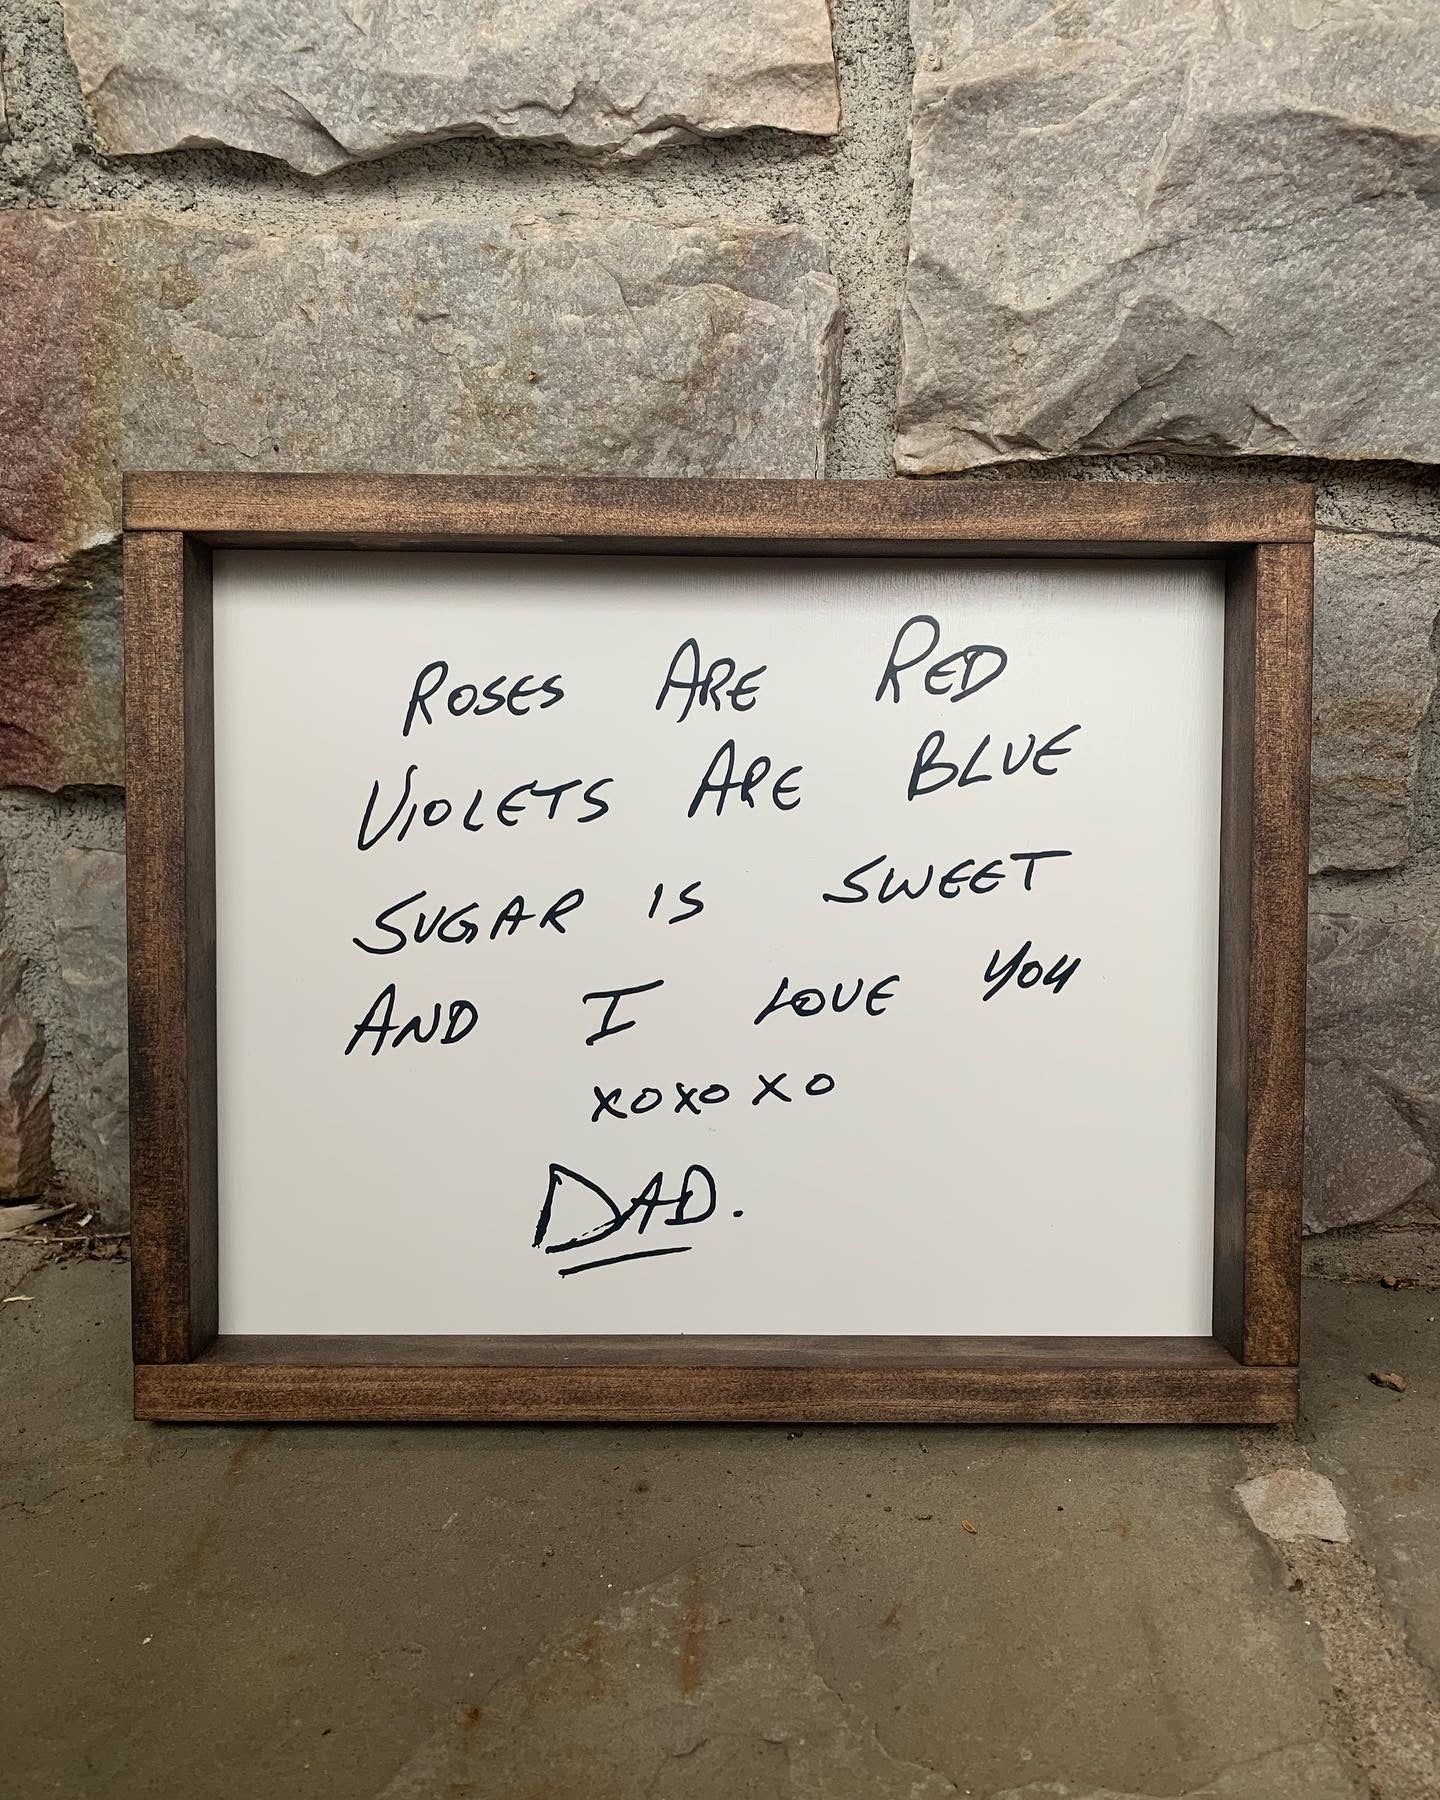 ROSES ARE RED
VIOLETS ARE BLUE
SUGAR IS SWEET
AND I LOVE YOU
XOXOXO
DAD.